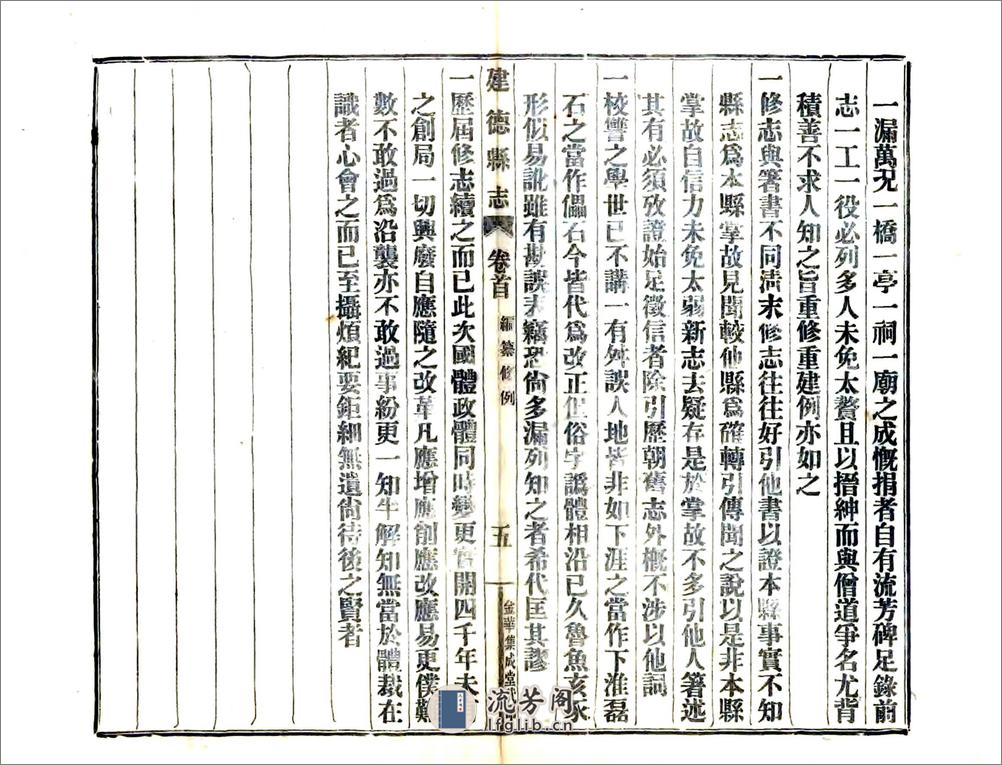 一漏萬況一橋一亭一祠一廟之成慨捐者自有流芳碑足錄前
志一工一役必列多人未免太贅且以搢紳而與僧道爭名尤背
積善不求人知之旨重修重建例亦如之
一修志與箸書不同淸末修志往往好引他書以證本縣事實不知
縣志爲本縣掌故見聞較他縣爲確轉引傳聞之說以是非本縣
掌故自信力未免太弱新志去疑存是於掌故不多引他人箸述
其有必須攷證始足徵信者除引歷朝舊志外槪不涉以他詞
一校讐之學世已不講一有舛誤人地皆非如下涯之當作下淮磊
石之當作儡石今皆代爲改正但俗字譌體相沿已久魯魚亥豕
形似易訛雖有勘誤表竊恐尙多漏列知之者希代匡其謬
建德縣志 卷首 編纂條例 五 金華集成堂
一歷屆修志續之而已此次國體政體同時變更實開四千年未
之創局一切興廢自應隨之改革凡應增應創應改應易更僕難
數不敢過爲沿襲亦不敢過事紛更一知半解知無當於體裁在
識者心會之而已至攝煩紀要鉅細無遺尙待後之賢者
流芳阁
lfglib.cn